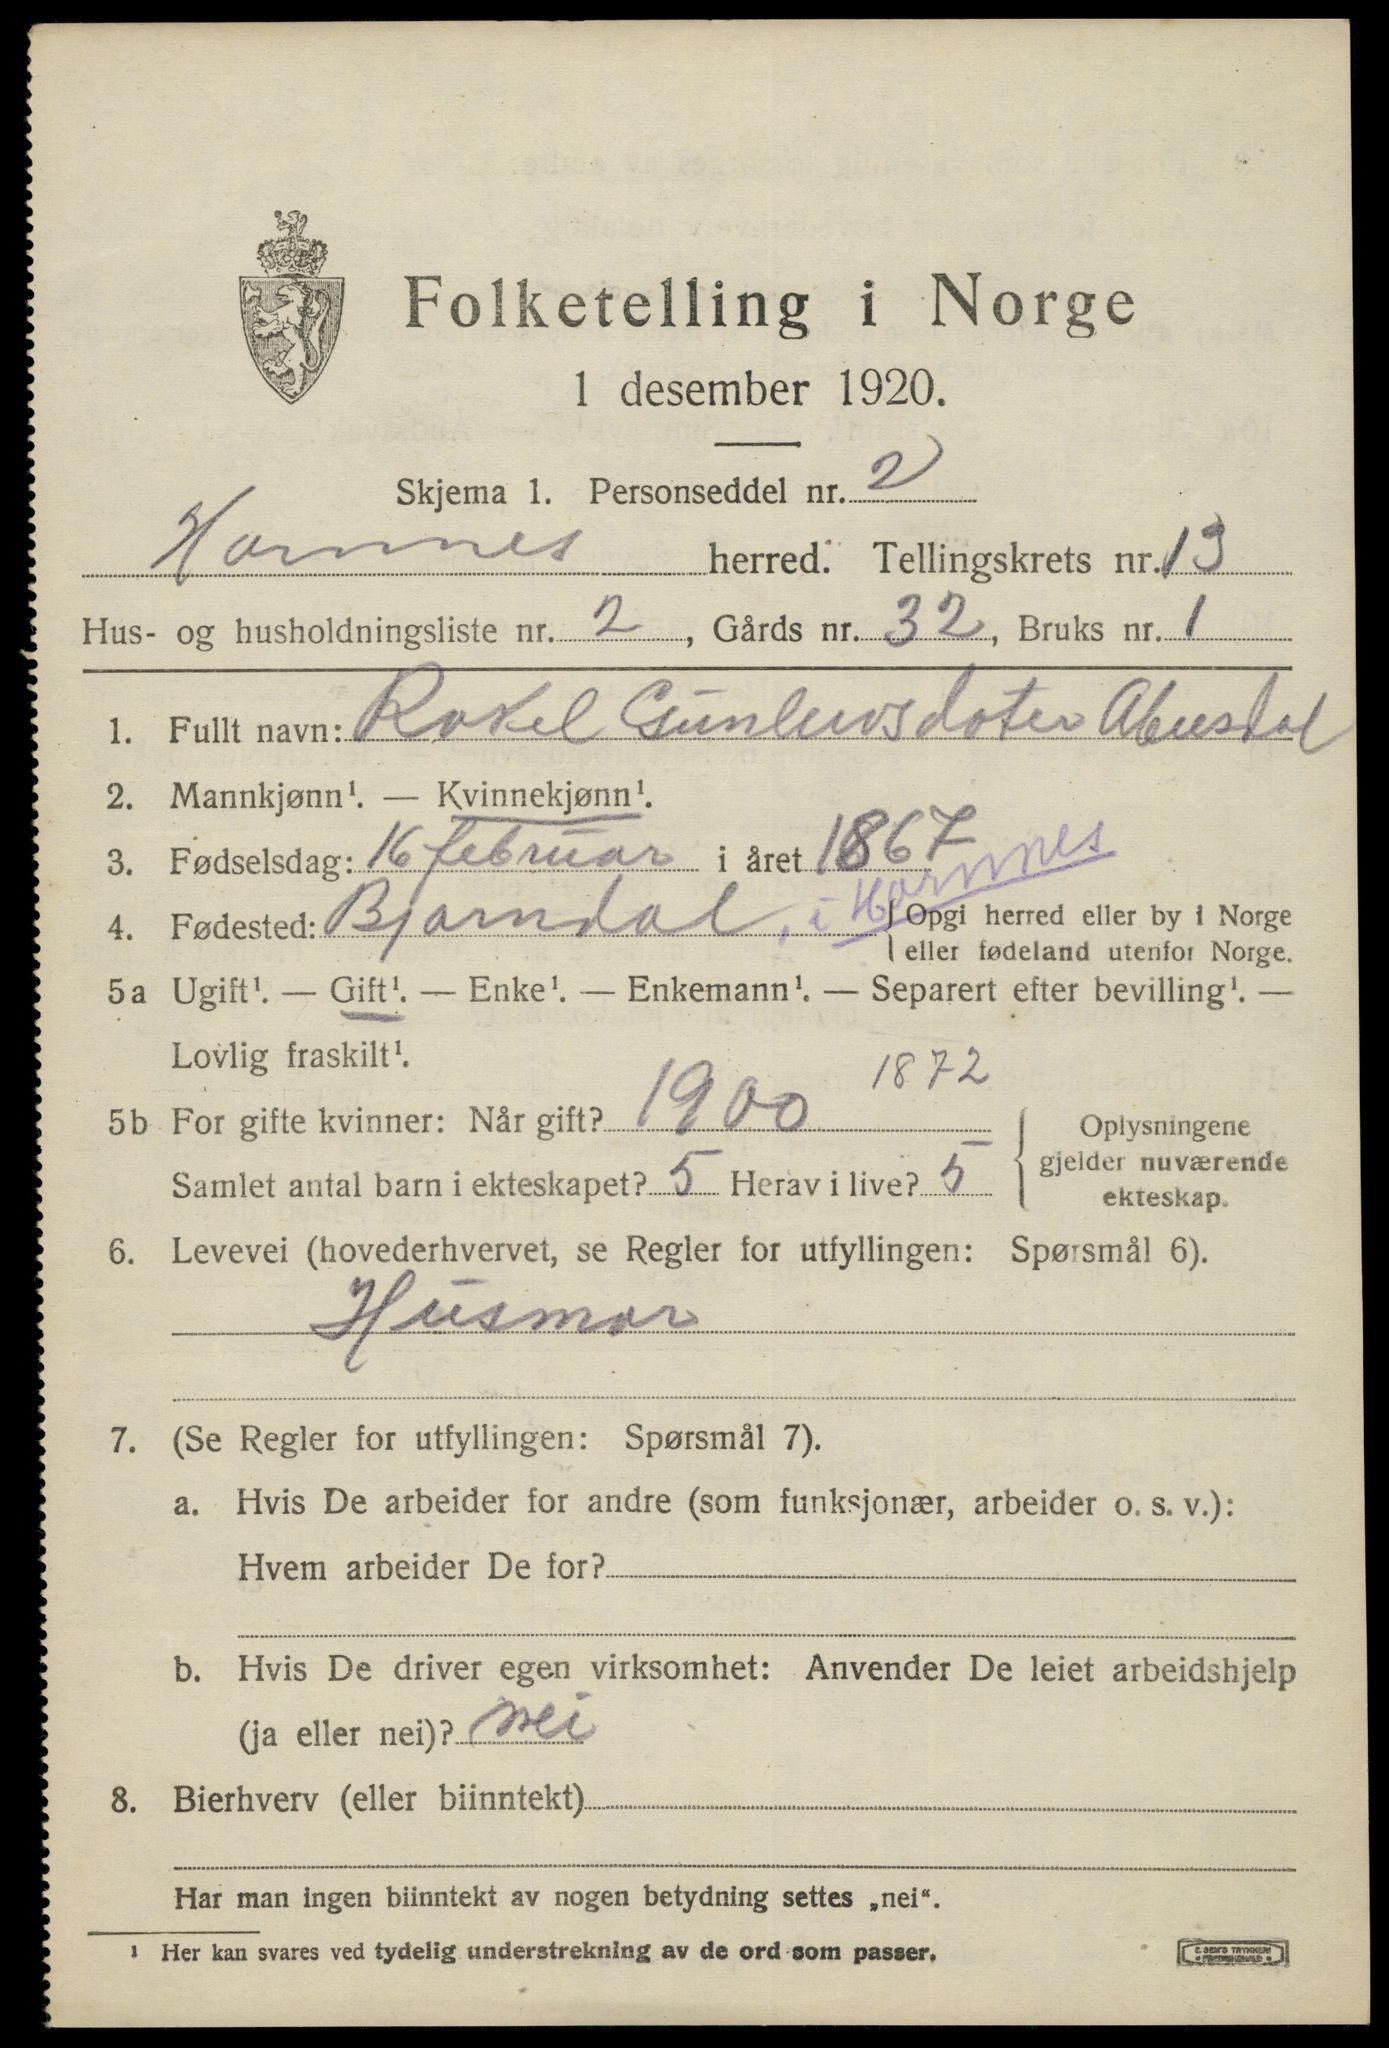 Folketelling i Norge
1 desember 1920.
Skjema 1. Personseddel nr. 2
Hornnes herred. Tellingskrets nr. 13
Hus- og husholdningsliste nr. 2, Gårds nr. 32, Bruks nr. 1
1. Fullt navn: Rakel Gunluvsdoter Abusdal
2. Mannkjønn¹. — Kvinnekjønn¹.
3. Fødselsdag: 16 februar i året 1867
4. Fødested: Bjorndal, i Hornnes { Opgi herred eller by i Norge
eller fødeland utenfor Norge.
5a Ugift¹. — Gift¹. — Enke¹. — Enkemann¹. — Separert efter bevilling¹. —
Lovlig fraskilt¹.
1872
5b For gifte kvinner: Når gift? 1900
Samlet antal barn i ekteskapet? 5 Herav i live? 5
Oplysningene
gjelder nuværende
ekteskap.
6. Levevei (hovederhvervet, se Regler for utfyllingen: Spørsmål 6).
Husmor
7. (Se Regler for utfyllingen: Spørsmål 7).
a. Hvis De arbeider for andre (som funksjonær, arbeider o. s. v.):
Hvem arbeider De for?
b. Hvis De driver egen virksomhet: Anvender De leiet arbeidshjelp
(ja eller nei)? nei
8. Bierhverv (eller biinntekt)
Har man ingen biinntekt av nogen betydning settes „nei“.
¹ Her kan svares ved tydelig understrekning av de ord som passer.